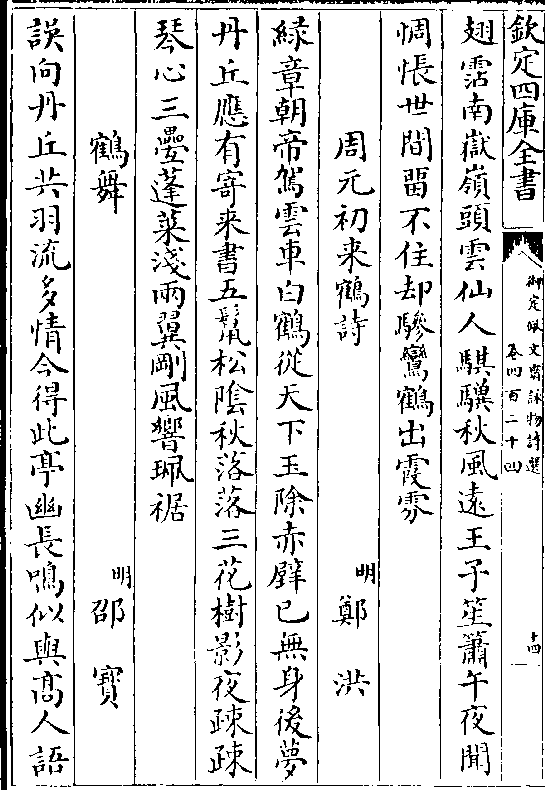 欽定四庫全書
御定佩文齋詠物詩選
卷四百二十四
十四
翅霑南嶽嶺頭雲仙人騏驥秋風遠王子笙簫午夜聞
惆悵世間畱不住却驂鸞鶴出霞雰
周元初来鶴詩
明鄭洪
緑章朝帝駕雲車白鶴從天下玉除赤壁已無身後夢
丹丘應有寄来書五鬛松陰秋落落三花樹影夜疎疎
琴心三疊蓬萊淺兩翼剛風響珮裾
鶴舞
明邵寶
誤向丹丘共羽流多情今得此亭幽長鳴似與髙人語